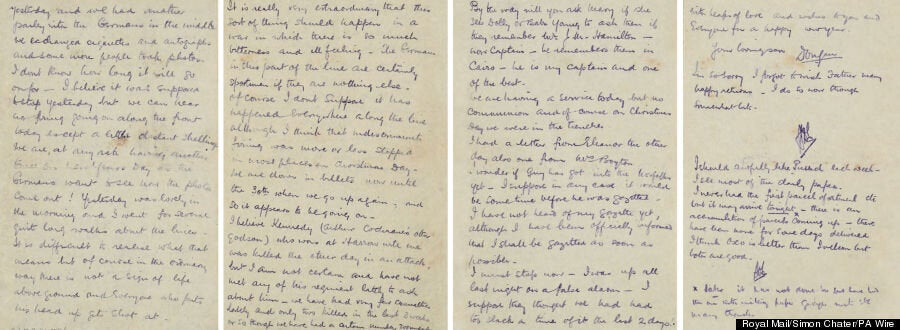 yesterday and we had another
party with the Germans in the middle
we exchanged cigarettes and autographs
and some more people took photos.
I dont know how long it will go
on for – I believe it was supposed
to stop yesterday but we can hear
no firing going on along the front
today except a little distant shelling
We are, at any rate, having another
truce on New Years Day as the
Germans want to see how the photos
come out! Yesterday was lovely in
the morning and I went for several
quite long walks about the lines.
It is difficult to realise what that
means but of course in the ordinary
way there is not a sign of life
above ground and everyone who puts
his head up gets shot at.
It is really very extraordinary that this
sort of thing should happen in a
war in which there is so much
bitterness and ill feeling. The Germans
in this part of the line are certainly
sportsmen if they are nothing else.
Of course I dont suppose it has
happened everywhere along the line
although I think that indiscriminate
firing was more or less stopped
in most places on Christmas Day.
We are down in billets now until
the 30th when we go up again, and
so it appears to be going on –
I believe Kennedy (Arthur Cochranes other
Godson) who was at Harrow with me
was killed the other day in an attack.
but I am not certain and have not
met any of his regiment lately to ask
about him – we have had very few casualties
lately and only two killed in the last 3 weeks
or so though we have had a certain number wounded
By the way will you ask Mary if she
Dolly or the Young to ask them if
they remember Mr J. H. Hamilton –
now Captain – he remembers them in
Cairo – he is my Captain and one
of the best.
We are having a service today but no
Communion and of course on Christmas
Day we were in the trenches
I had a letter from Eleanor the other
day also one from Mrs Boyton
I wonder if Guy has got into the Norfolks
yet – I suppose in any case it would
be some time before he was gazetted.
I have not heard of my Gazette yet,
although I have been officially informed
that I shall be gazetted as soon as
possible.
I must stop now – I was up all
last night on a false alarm – I
suppose they thought we had had
too slack a time of it the last 2 days!
with heaps of love and wishes to you and
Everyone for a happy new year.
Your loving son
Dougan
I'm so sorry I forgot to wish Father many
happy returns – I do so now though
somewhat late.
I should awfully like Punch each week –
I see most of the daily papers.
I never had the first parcel of
but it may arrive tonight – there is an
accumulation of parcels coming up – there
have been none for some days delivered
I think Oxo is better than Ivelcon but
both are good.
it has not done in but here his
paper George met it
many thanks.
Royal Mail/Simon Chater/PA Wire